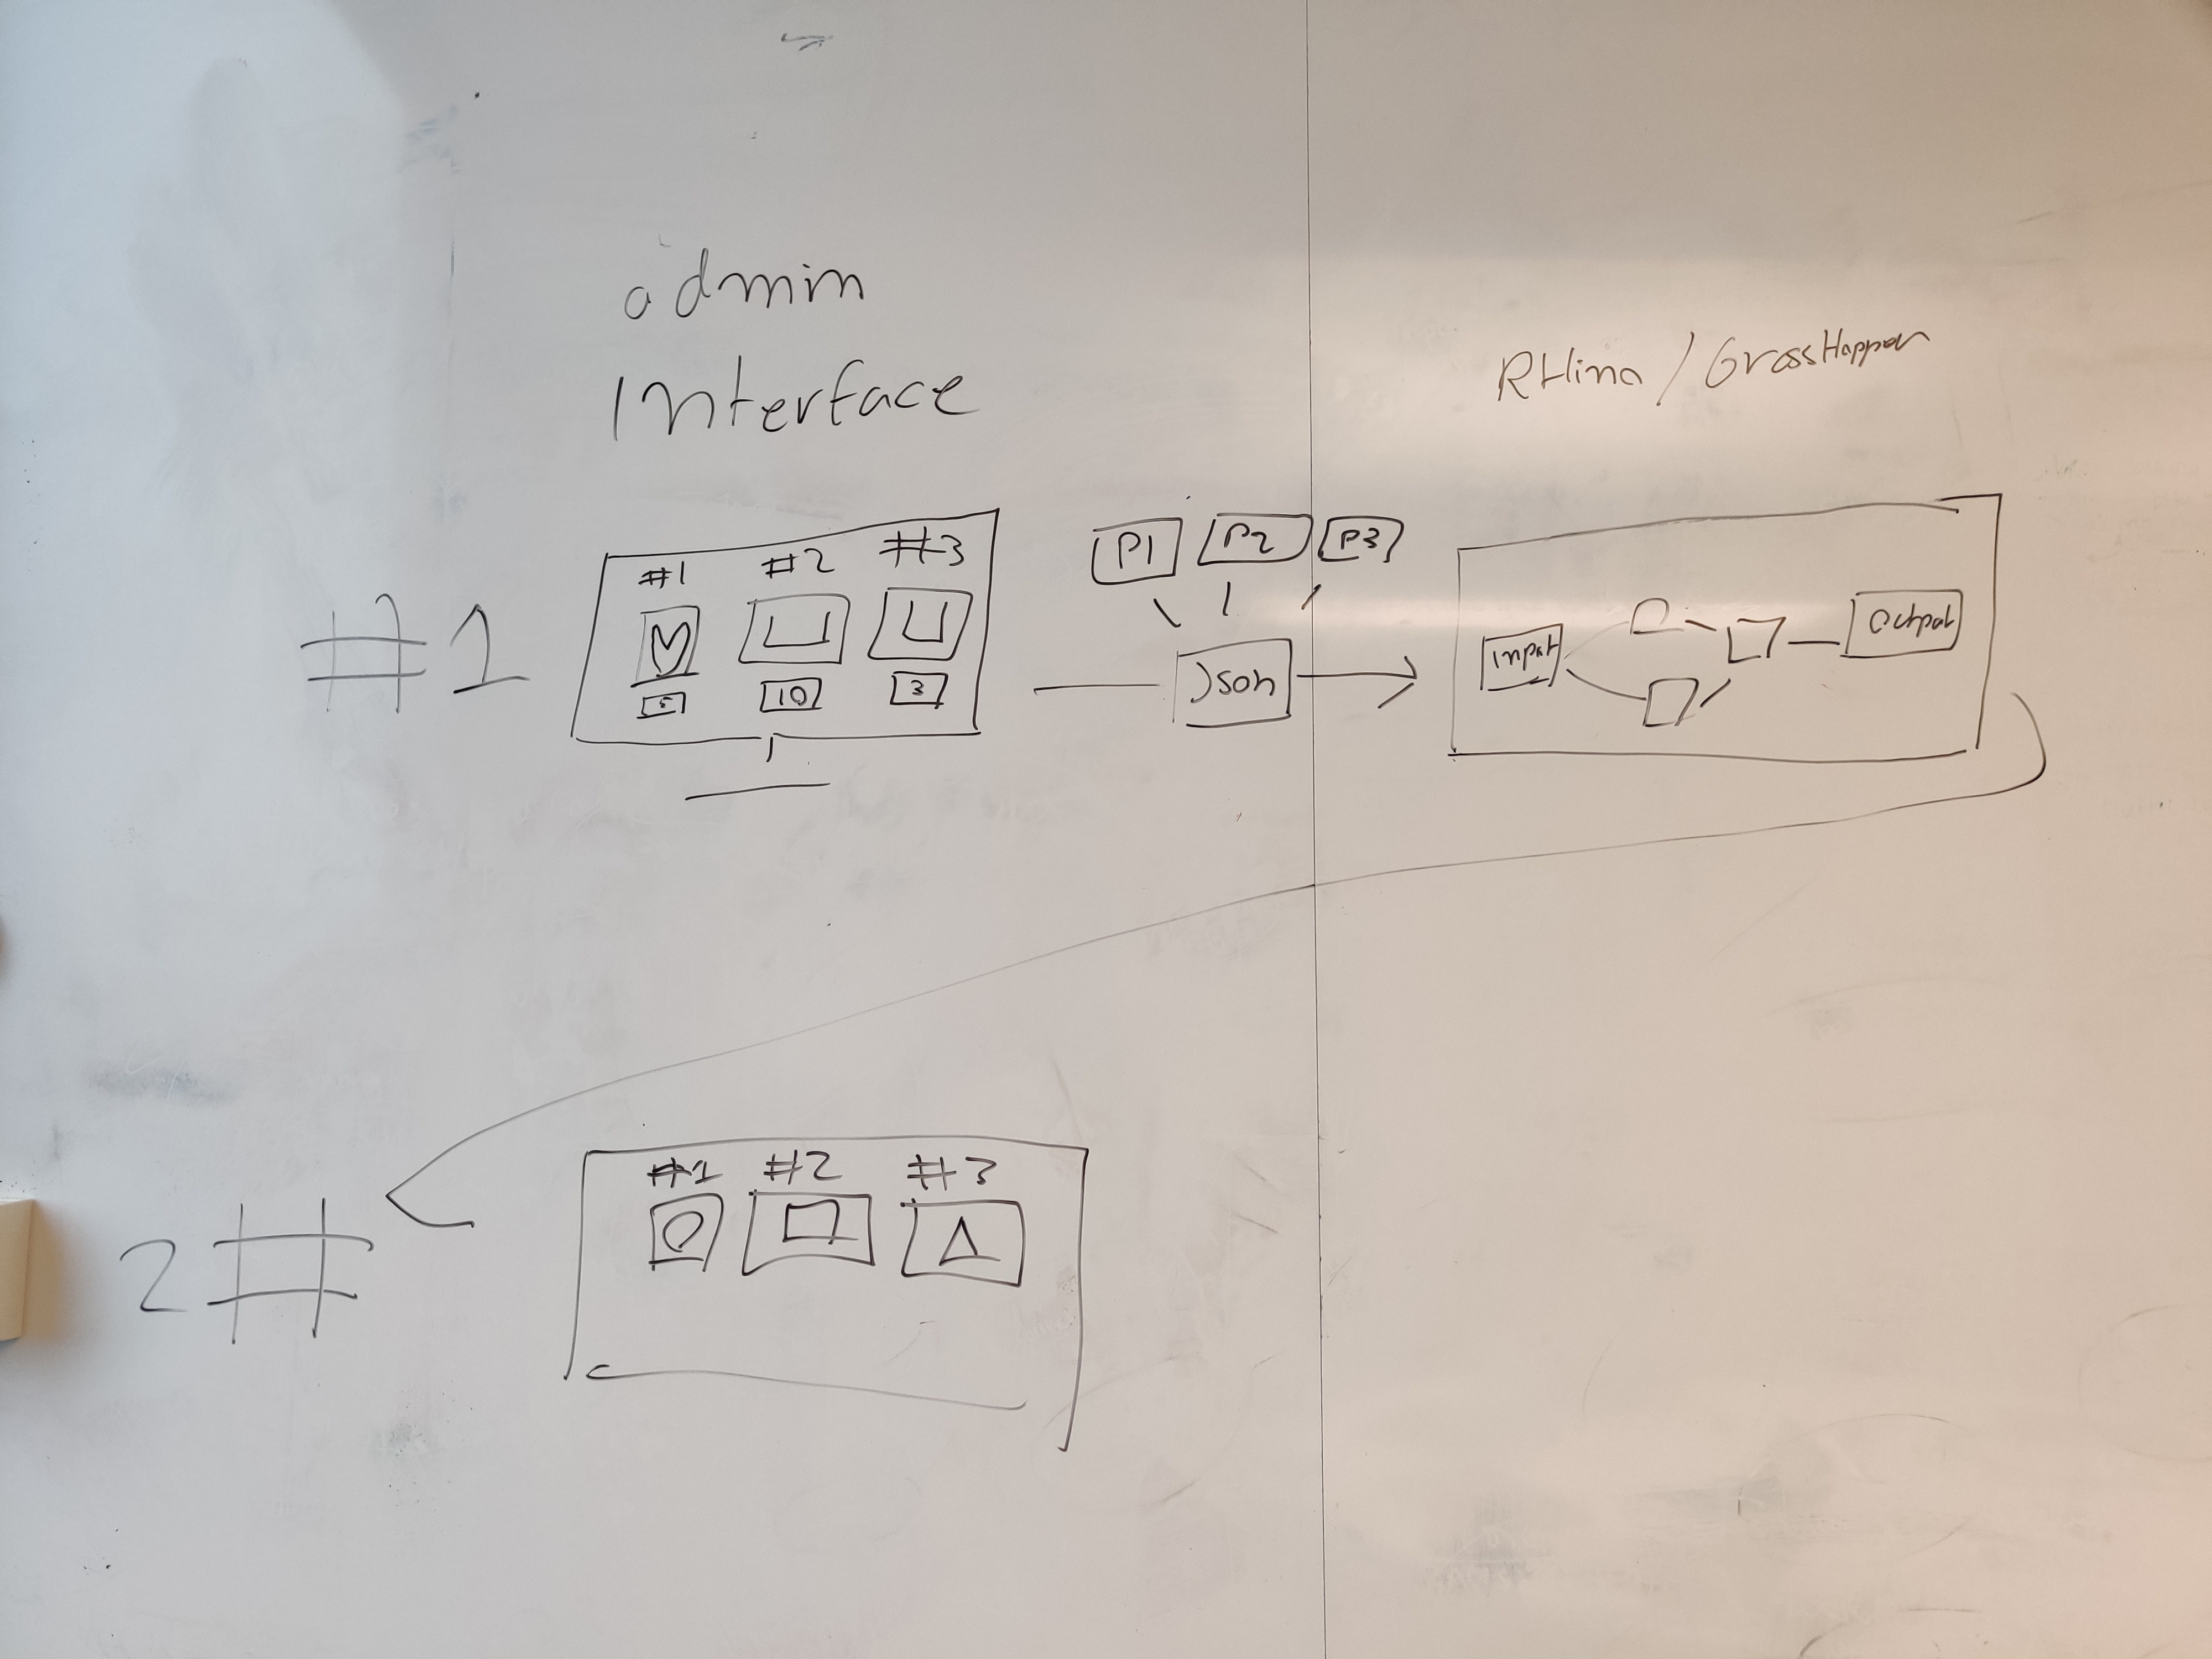 admin
Interface
RHino / GrassHapper
#1
#1 #2 #3
5 10 3
P1 P2 P3
Json
Input
Output
2#
#1 #2 #3